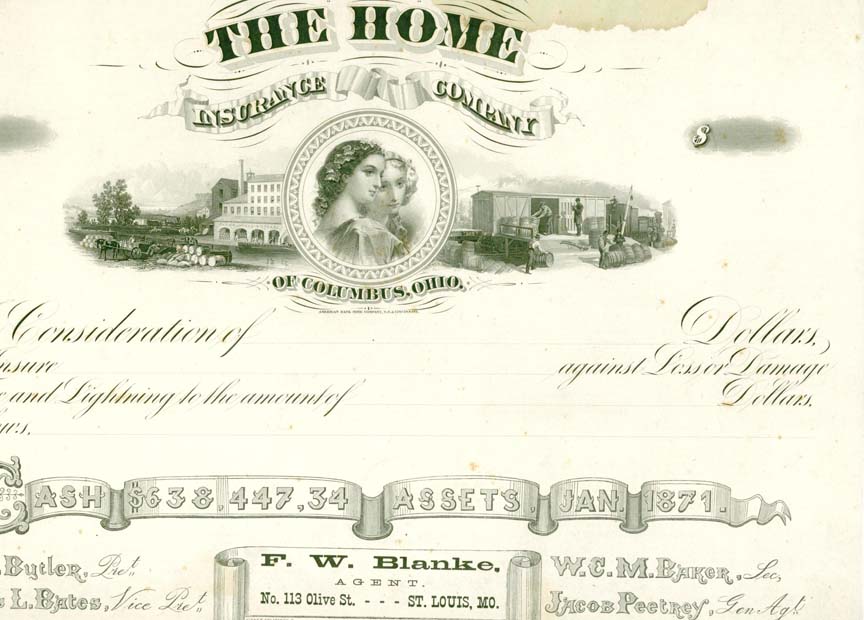 THE HOME
INSURANCE COMPANY
$
OF COLUMBUS, OHIO,
AMERICAN BANK NOTE COMPANY, N.Y. & CINCINNATI.
Consideration of Dollars,
nsure against Loss or Damage
and Lightning to the amount of Dollars.
ws.
CASH $638,447,34 ASSETS, JAN. 1871.
Butler, Prest. F. W. Blanke, W.C.M. Baker, Sec.
AGENT.
s L. Bates, Vice Prest. No. 113 Olive St. - - - - ST. LOUIS, MO. Jacob Peetrey, Gen Agt.